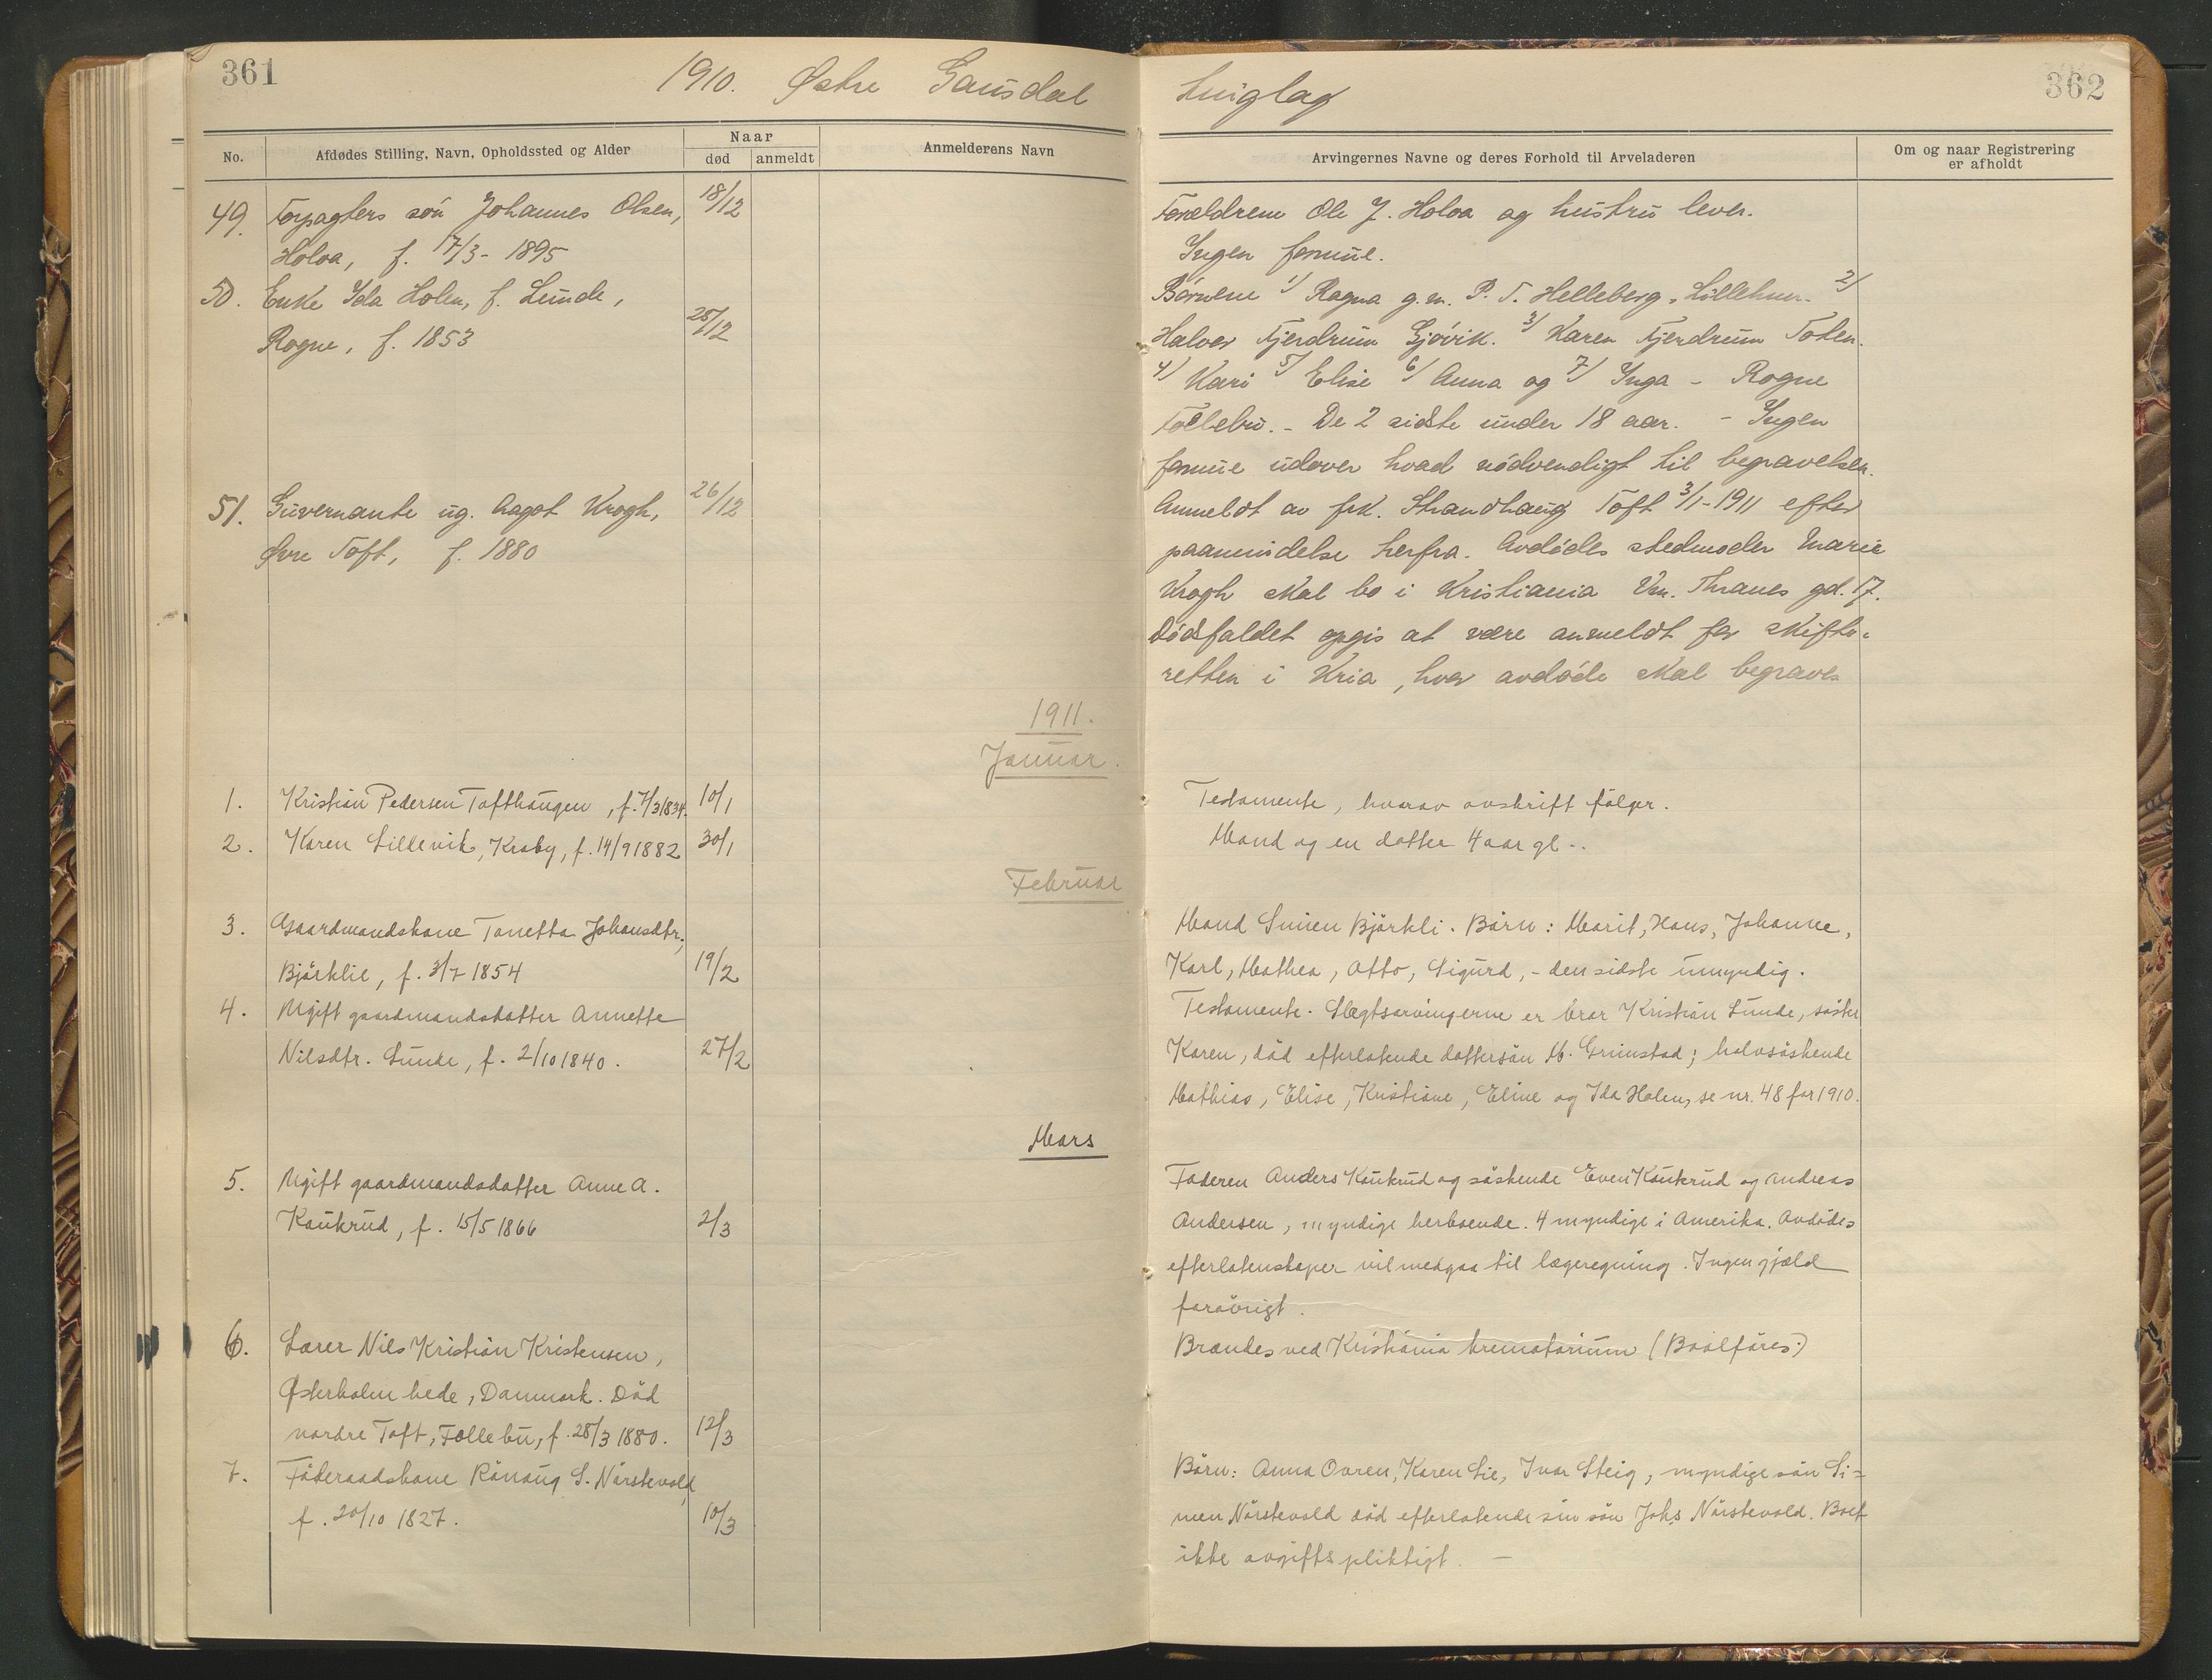 361
1910. Østre Gausdal
No.
Afdødes Stilling, Navn, Opholdssted og Alder
Naar
død
anmeldt
Anmelderens Navn
49. Forpagters søn Johannes Olsen, 18/12
Holoa, f. 17/3 - 1895
50. Enke Ida Holen, f. Lunde,
Rogne, f. 1853 25/12
51. Guvernante ug. Aagot Krogh, 26/12
Øvre Toft, f. 1880
1911.
Januar.
1. Kristian Pedersen Tofthaugen, f. 7/3 1834. 10/1
2. Karen Lillevik, Kraby, f. 14/9 1882 30/1
Februar
3. Gaardmandskone Tonetta Johansdtr,
Bjørklie, f. 3/7 1854 19/2
4. Ugift gaardmandsdatter Annette
Nilsdtr. Lunde, f. 2/10 1840. 27/2
Mars
5. Ugift gaardmandsdatter Anne A.
Kaukrud, f. 15/5 1866 2/3
6. Lærer Nils Kristian Kristensen,
Østerholm hede, Danmark. Død
nordre Toft, Follebu, f. 28/3 1880. 12/3
7. Föderaadskone Rønaug S. Nørstevold,
f. 20/10 1827. 10/3
362
Arvingernes Navne og deres Forhold til Arveladeren
Om og naar Registrering
er afholdt
Forældrene Ole J. Holoa og hustru lever.
Ingen formue.
Børnene 1/ Ragna g.m. P. T. Helleberg, Lillehmr. 2/
Halvor Fjerdrum Gjøvik. 3/ Karen Fjerdrum Toten.
4/ Kari 5/ Elise 6/ Anna og 7/ Inga - Rogne
Follebu. - De 2 sidste under 18 aar. - Ingen
formue udover hvad nødvendigt til begravelsen.
Anmeldt av frk. Strandhaug Toft 3/1-1911 efter
paamindelse herfra. Avdødes stedmoder Marie
Krogh skal bo i Kristiania Vm. Thranes gd. 17.
Dødsfaldet opgis at være anmeldt for skifte-
retten i Kria, hvor avdøde skal begraves
Testamente, hvorav avskrift følger.
Mand og en datter 4 aar gl..
Mand Simen Bjørkli. Børn: Marit, Hans, Johanne,
Karl, Mathea, Otto, Sigurd, - den sidste umyndig.
Testamente. Slegtsarvingerne er bror Kristian Lunde, søster
Karen, død efterlatende dattersøn M. Grimstad; halvsøskende
Mathias, Elise, Kristiane, Eline og Ida Holen, se nr. 48 for 1910.
Faderen Anders Kaukrud og søskende Even Kaukrud og Andreas
Andersen, myndige herboende. 4 myndige i Amerika. Avdødes
efterlatenskaper vil medgaa til lægeregning. Ingen gjæld
forøvrigt.
Brændes ved Kristiania krematorium (Baalføres.)
Børn: Anna Ovren, Karen Lie, Ivar Steig, myndige søn Si=
men Nørstevold død efterlatende sin søn Johs Nørstevold. Boet
ikke avgiftspliktigt. -